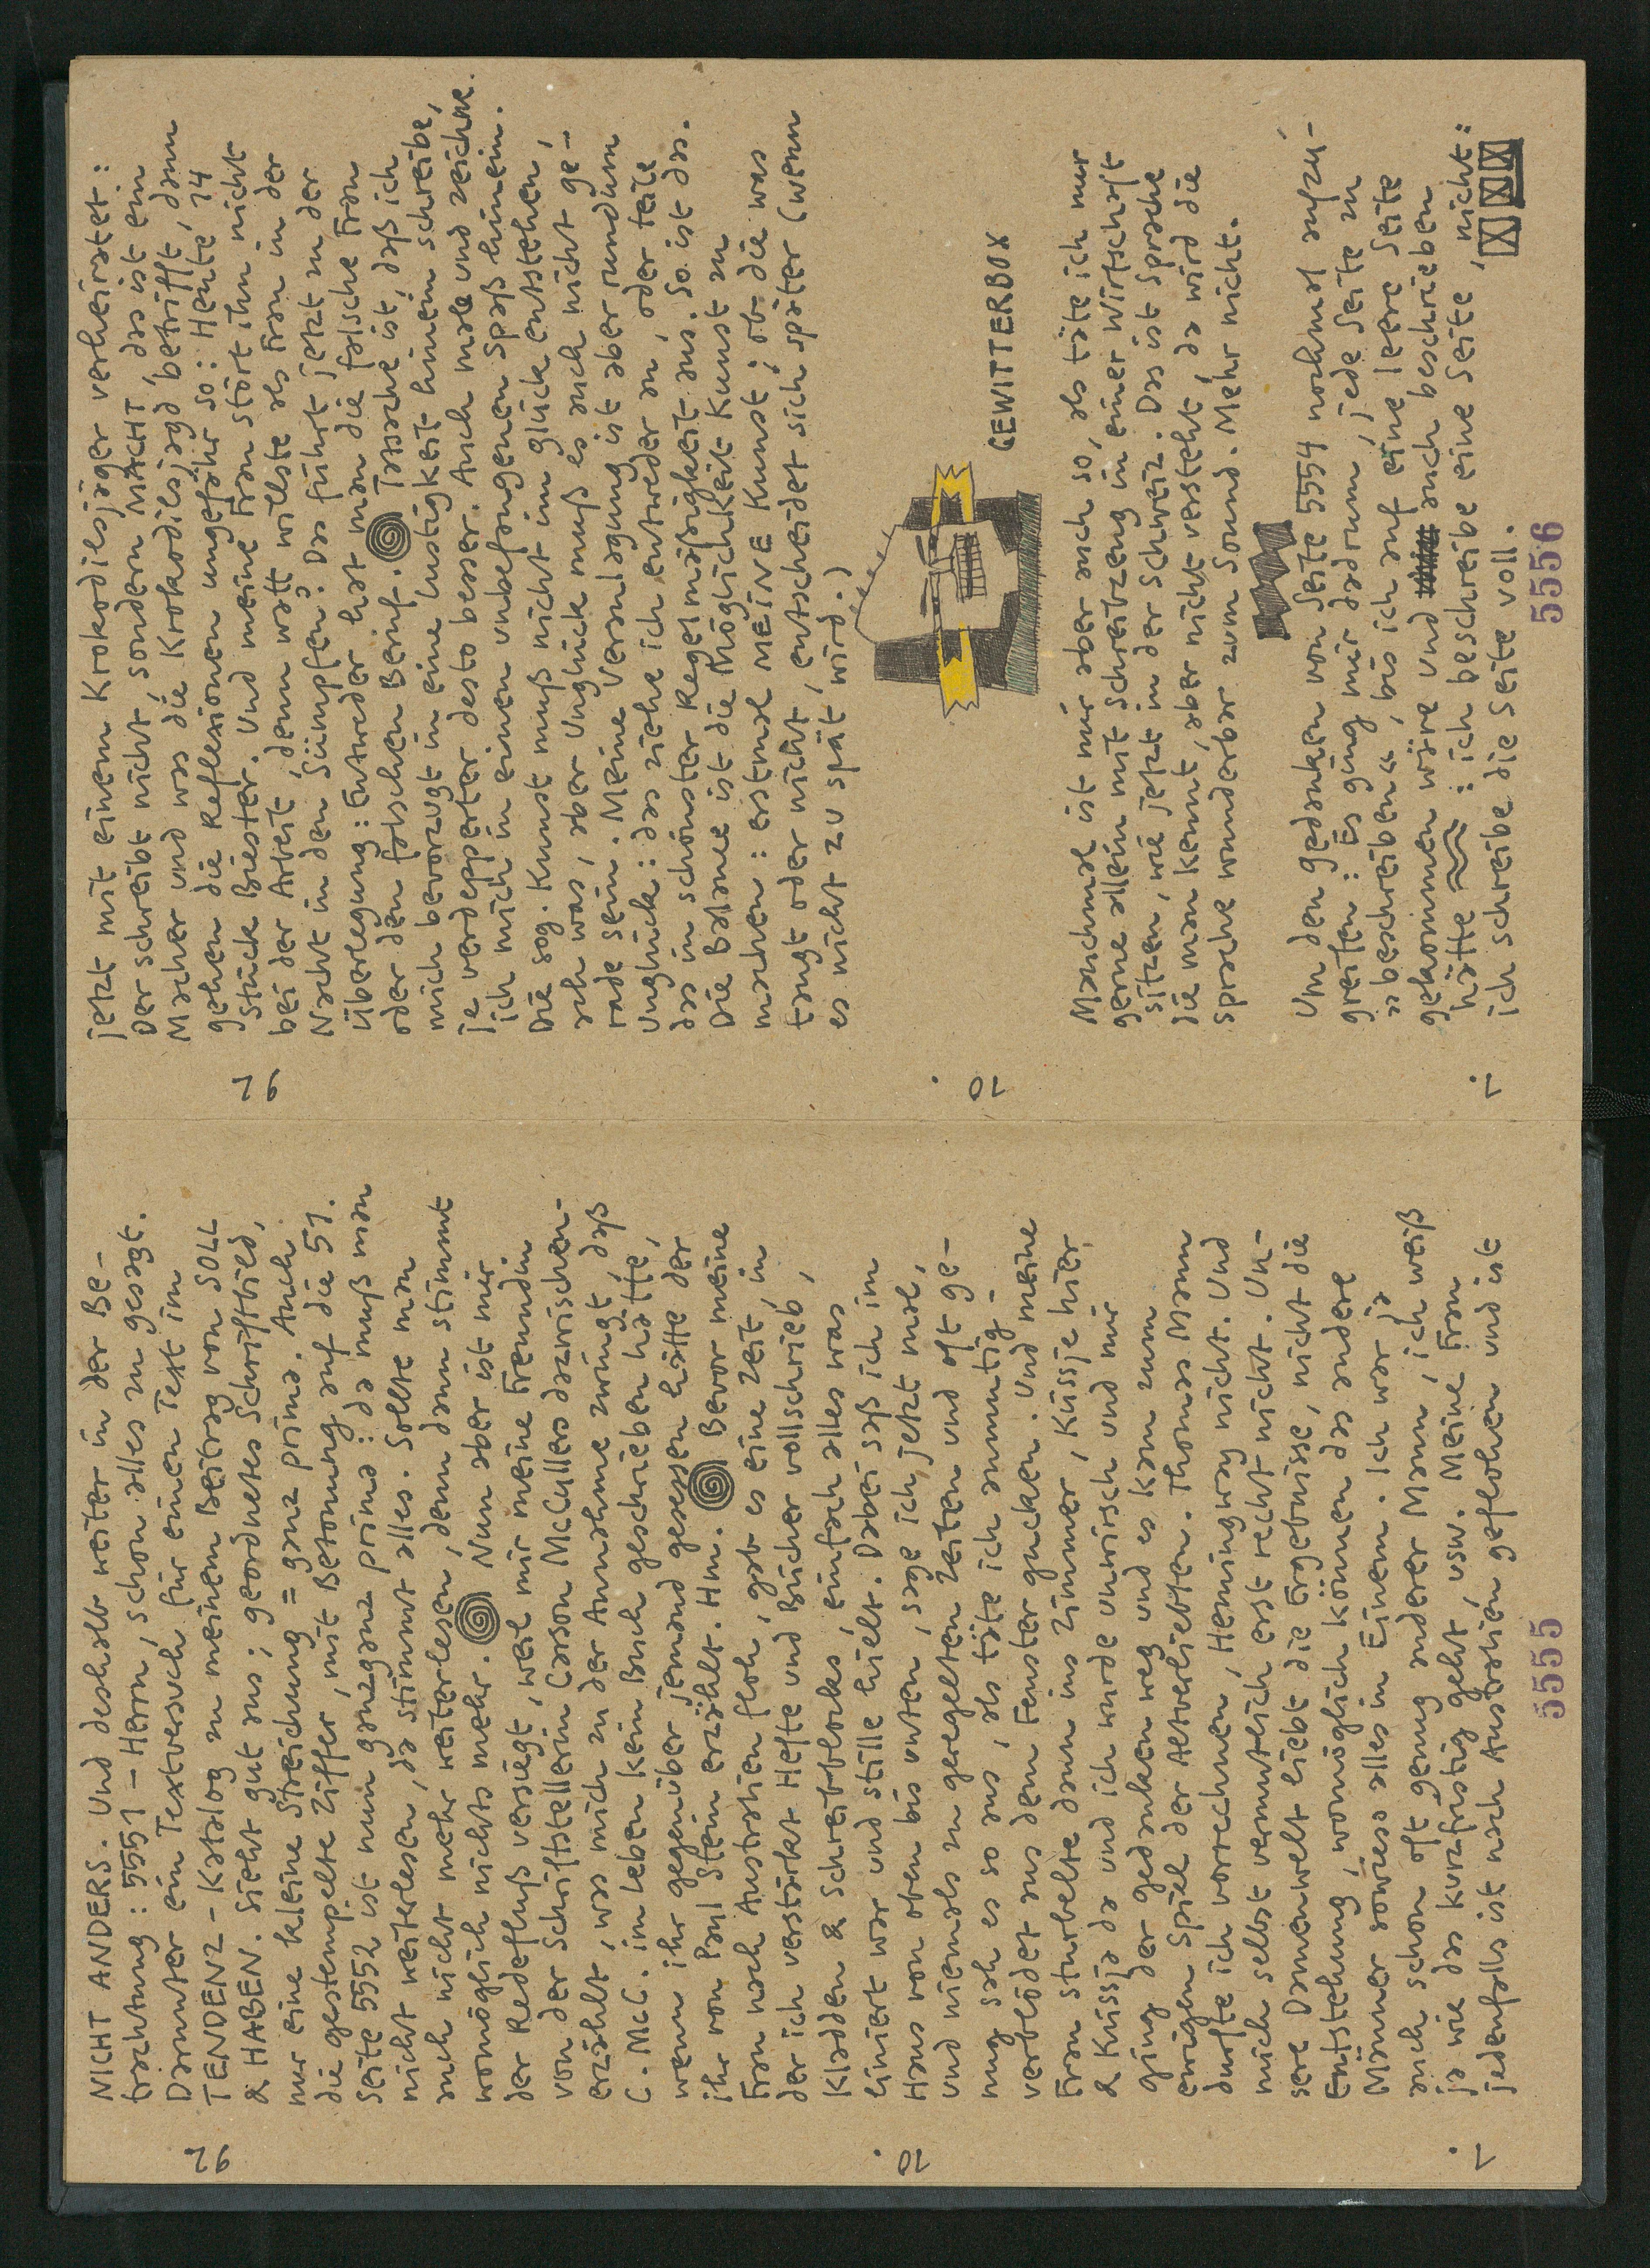 NICHT ANDERS. Und deshalb weiter in der Be-
trachtung: 5551 - Herrn, schon alles zu gesagt.
Darunter ein Textversuch für einen Text im
TENDENZ-Katalog zu meinem Beitrag von SOLL
& HABEN. Sieht gut aus; geordnetes Schriftbild,
nur eine kleine Streichung = ganz prima. Auch
die gestempelte Ziffer, mit Betonung auf die 51.
Seite 5552 ist nun ganzganz prima: da muß man
nicht weiterlesen, da stimmt alles. Sollte man
auch nicht mehr weiterlesen, denn dann stimmt
womöglich nichts mehr. Nun aber ist mir
der Redefluß versiegt, weil mir meine Freundin
von der Schriftstellerin Carson McCullers dazwischen-
erzählt, was mich zu der Annahme zwingt, daß
C. McC. im Leben kein Buch geschrieben hätte,
wenn ihr gegenüber jemand gesessen hätte der
ihr von Paul Stein erzählt. Hm. Bevor meine
Frau nach Australien floh, gab es eine Zeit, in
der ich verstärkt Hefte und Bücher vollschrieb,
Kladden & Schreibblocks, einfach alles was
liniert war und stille hielt. Dabei saß ich im
Haus von oben bis unten, sage ich jetzt mal,
und niemals zu geregelten Zeiten und oft ge-
nug sah es so aus, als täte ich anmutig-
verblödet aus dem Fenster gucken. Und meine
Frau sturbelte dann ins Zimmer, Küssje hier
& Küssje da und ich wurde unwirsch und mir
ging der Gedanken weg und es kam zum
ewigen Spiel der Altverliebten. Thomas Mann
durfte ich vorrechnen, Hemingway nicht. Und
mich selbst vermutlich erst recht nicht. Un-
sere Damenwelt liebt die Ergebnisse, nicht die
Entstehung, womöglich können das andere
Männer sowieso alles in Einem. Ich war ja
auch schon oft genug anderer Mann, ich weiß
ja wie das kurzfristig geht, usw. Meine Frau
jedenfalls ist nach Australien geflohen und ist
26
10.
1.
5555
jetzt mit einem Krokodilsjäger verheiratet:
Der schreibt nicht, sondern MACHT, das ist ein
Macher und was die Krokodilsjagd betrifft, dann
gehen die Reflexionen ungefähr so: Heute 14
Stück Biester. Und meine Frau stört ihn nicht
bei der Arbeit, denn watt willste als Frau in der
Nacht in den Sümpfen? Das führt jetzt zu der
Überlegung: Entweder hat man die falsche Frau
oder den falschen Beruf. Tatsache ist, daß ich
mich bevorzugt in eine Lustigkeit hinein schreibe,
je verdepperter desto besser. Auch male und zeichne
ich mich in einen unbefangenen Spaß hinein.
Die sog. Kunst muß nicht im Glück entstehen,
ach was, aber Unglück muß es auch nicht ge-
rade sein. Meine Veranlagung ist aber rundum
Unglück: das ziehe ich entweder an, oder teile
das in schönster Regelmäßigkeit aus. So ist das.
Die Balance ist die Möglichkeit Kunst zu
machen: erstmal MEINE Kunst; ob die was
taugt oder nicht, entscheidet sich später (wenn
es nicht zu spät wird.)
GEWITTERBOX
Manchmal ist mir aber auch so, als täte ich nur
gerne allein mit Schreibzeug in einer Wirtschaft
sitzen, wie jetzt in der Schweiz. Das ist Sprache
die man kennt, aber nicht versteht, da wird die
Sprache wunderbar zum Sound. Mehr nicht.
Um den Gedanken von Seite 5554 nochmal aufzu-
greifen: Es ging mir darum, jede Seite zu
»beschreiben«, bis ich auf eine leere Seite
gekommen wäre und auch beschrieben
hätte: ich beschreibe eine Seite, nicht:
ich schreibe die Seite voll.
26
10.
1.
5556